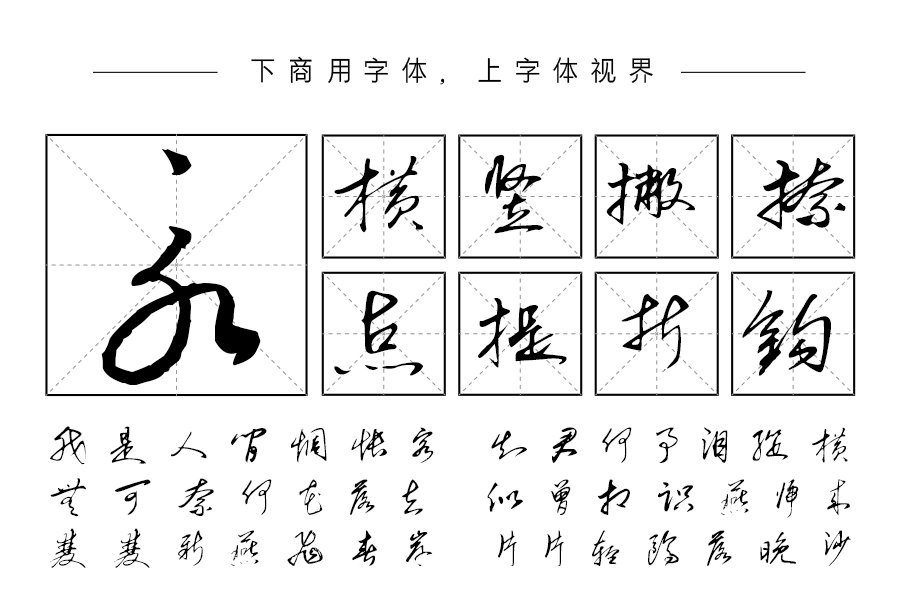 下商用字体，上字体视界
永
横竖撇捺
点提折鈎
我是人间惆怅客 知君何事泪纵横
無可奈何花落去 似曾相识燕归来
雙雙新燕飛春岸 片片轻鸥落晚沙